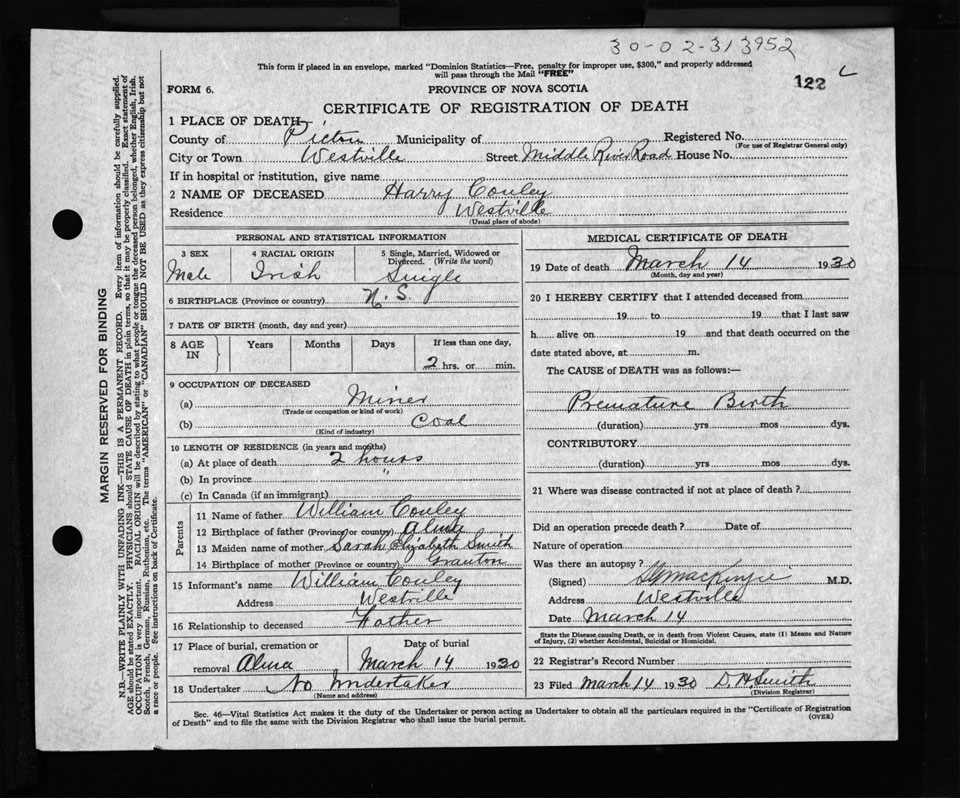 30-02-313952
This form if placed in an envelope, marked "Dominion Statistics—Free, penalty for improper use, $300," and properly addressed
will pass through the Mail "FREE"
122 L
FORM 6.
PROVINCE OF NOVA SCOTIA
CERTIFICATE OF REGISTRATION OF DEATH
1 PLACE OF DEATH
County of Pictou Municipality of Registered No.
(For use of Registrar General only)
City or Town Westville Street Middle River Road House No.
If in hospital or institution, give name
2 NAME OF DECEASED Harry Conley
Residence Westville
(Usual place of abode)
PERSONAL AND STATISTICAL INFORMATION
3 SEX
Male
4 RACIAL ORIGIN
Irish
5 Single, Married, Widowed or
Divorced. (Write the word)
Single
6 BIRTHPLACE (Province or country) N. S.
7 DATE OF BIRTH (month, day and year)
8 AGE
IN
Years
Months
Days
If less than one day,
2 hrs. or min.
9 OCCUPATION OF DECEASED
(a) Miner
(Trade or occupation or kind of work)
(b) Coal
(Kind of industry)
10 LENGTH OF RESIDENCE (in years and months)
(a) At place of death 2 hours
(b) In province "
(c) In Canada (if an immigrant)
Parents
11 Name of father William Conley
12 Birthplace of father (Province or country) Alma
13 Maiden name of mother Sarah Elizabeth Smith
14 Birthplace of mother (Province or country) Granton
15 Informant's name William Conley
Address Westville
16 Relationship to deceased Father
17 Place of burial, cremation or
removal Alma
Date of burial
March 14 1930
18 Undertaker No Undertaker
(Name and address)
MEDICAL CERTIFICATE OF DEATH
19 Date of death March 14 1930
(Month, day and year)
20 I HEREBY CERTIFY that I attended deceased from
19 to 19 that I last saw
h alive on 19 and that death occurred on the
date stated above, at m.
The CAUSE of DEATH was as follows:—
Premature Birth
(duration) yrs mos dys.
CONTRIBUTORY
(duration) yrs mos dys.
21 Where was disease contracted if not at place of death?
Did an operation precede death? Date of
Nature of operation
Was there an autopsy?
(Signed) MacKenzie M.D.
Address Westville
Date March 14
State the Disease causing Death, or in death from Violent Causes, state (1) Means and Nature
of Injury, (2) whether Accidental, Suicidal or Homicidal.
22 Registrar's Record Number
23 Filed March 14 1930 D. H. Smith
(Division Registrar)
Sec. 46—Vital Statistics Act makes it the duty of the Undertaker or person acting as Undertaker to obtain all the particulars required in the "Certificate of Registration
of Death" and to file the same with the Division Registrar who shall issue the burial permit.
(OVER)
MARGIN RESERVED FOR BINDING
N.B.—WRITE PLAINLY WITH UNFADING INK—THIS IS A PERMANENT RECORD. Every item of information should be carefully supplied.
AGE should be stated EXACTLY. PHYSICIANS should STATE CAUSE OF DEATH in plain terms, so that it may be properly classified. Exact statement of
OCCUPATION is very important. RACIAL ORIGIN will be described by stating to what people or tongue the deceased person belonged, whether English, Irish,
Scotch, French, German, Russian, Ruthenian, etc. The terms "AMERICAN" or "CANADIAN" SHOULD NOT BE USED as they express citizenship but not
a race or people. See instructions on back of Certificate.